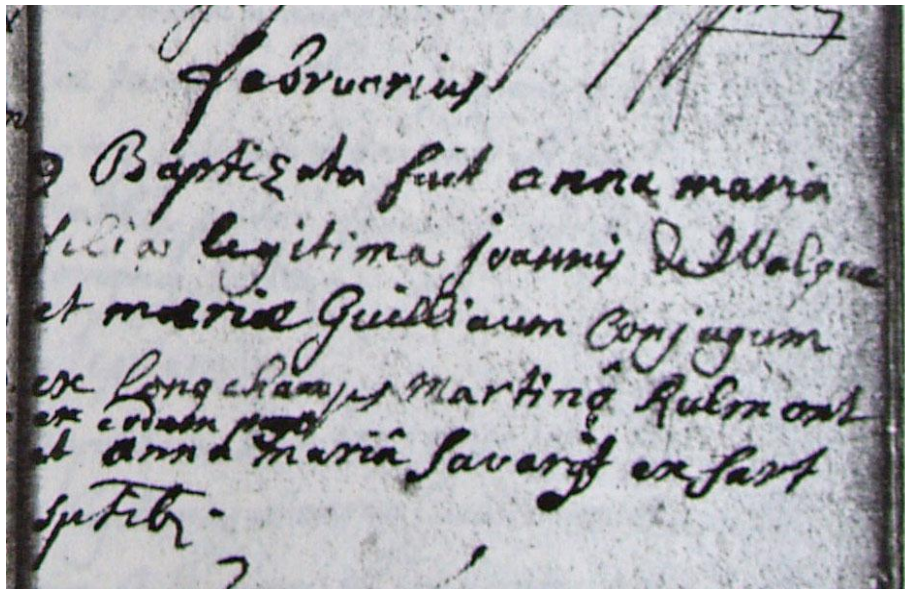 februarius
9 Baptizata fuit anna maria
filia legitima joannis de Walque
et mariæ Guilliaum Conjugum
ex Longchamps martinõ Rulmont
ex eodem
et anna mariâ Savary ex Sart
sptib9.